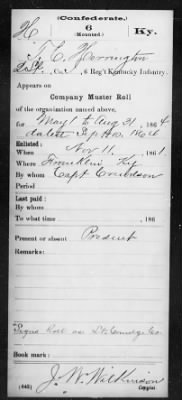 (Confederate.)
H 6 Ky.
(Mounted.)
T. C. Herrington
Co. , 6 Reg't Kentucky Infantry.
Appears on
Company Muster Roll
of the organization named above,
for May 1 to Aug 31, 1864
dated
Enlisted:
When Nov 11, 1861
Where Franklin Ky
By whom Capt
Period
Last paid:
By whom
To what time , 186
Present or absent Present
Remarks:
Signs Roll as
Book mark:
(642) J. W. Wilkinson
Copyist.